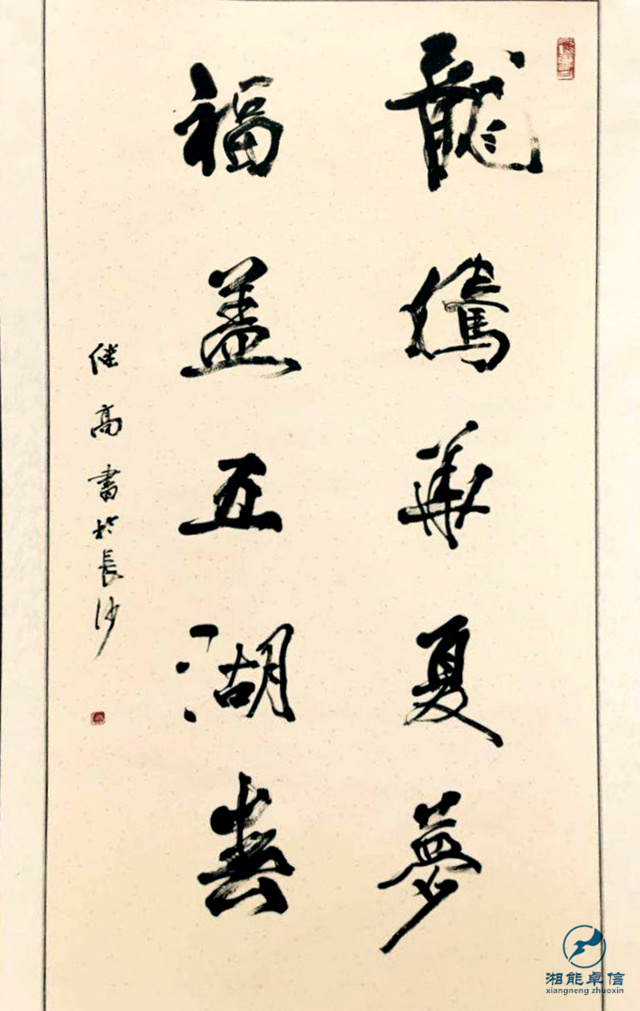 龍騰華夏夢
福盖五湖春
健高書於長沙
湘能卓信
xiangneng zhuoxin